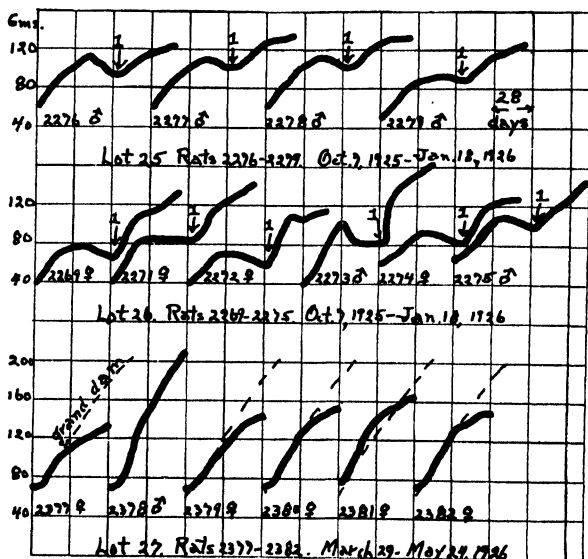 Gms.
120
80
40
1 1 1 1
28
days
2276 ♂ 2277 ♂ 2278 ♂ 2279 ♂
Lot 25. Rats 2276-2279. Oct. 7, 1925-Jan. 18, 1926
120
80
40
1 1 1 1 1 1
2269 ♀ 2271 ♀ 2272 ♀ 2273 ♂ 2274 ♀ 2275 ♂
Lot 26. Rats 2269-2275. Oct. 7, 1925-Jan. 18, 1926
200
160
120
80
40
Grand dam
2377 ♀ 2378 ♂ 2379 ♀ 2380 ♀ 2381 ♀ 2382 ♀
Lot 27. Rats 2377-2382. March 29-May 24, 1926